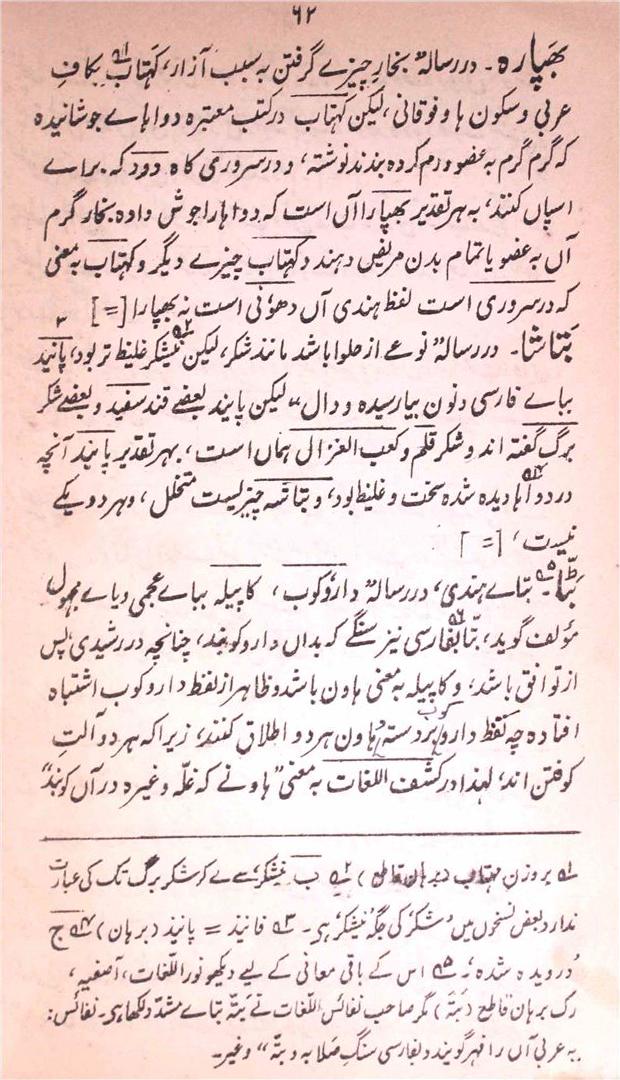 ۶۲
بھپارہ۔ در رسالہ" بخارِ چیزے گرفتن بہ سبب آزار، کَہتاب۱ بکافِ
عربی و سکون ہا و فوقانی، لیکن کَہتاب در کتب معتبرہ دواہاے جوشانیدہ
کہ گرم گرم بہ عضو ورم کردہ بندند نوشتہ، و در سروری کاہ دود کہ براے
اسپاں کنند، بہ ہر تقدیر بھپارا آں است کہ دواہا را جوش دادہ بخار گرم
آں بہ عضو یا تمام بدن مریض دہند و کَہتاب چیزے دیگر و کَہتاب بہ معنی
کہ در سروری است لفظ ہندی آں دھونی است نہ بھپارا [=]
بَتاشا۔ در رسالہ" نوعے از حلوا باشد مانند شکر، لیکن۲ نیشکر غلیظ تر بود، پانید۳
بباے فارسی و نون بیا رسیدہ و دال،" لیکن پانید بعضے قند سفید و بعضے شکر
برگ گفتہ اند و شکر قلم و کعب الغزال ہماں است، بہر تقدیر پانید آنچہ
در دواہا دیدہ شدہ۴ سخت و غلیظ بود، و بتاشہ چیزیست متخلل، و ہر دو یکے
نیست، [=]
بَٹّا۔۵ بتاے ہندی، در رسالہ" داروکوب، کاپیلہ بباے عجمی و یاے مجہول
مؤلف گوید، بتّا۶ بفارسی نیز سنگے کہ بداں دارو کوبند، چنانچہ در رشیدی، پس
از توافق باشد، و کاپیلہ بہ معنی ہاون باشد و ظاہر از لفظ داروکوب اشتباہ
افتادہ چہ لفظ دارو کوب بر دستہ و ہاون ہر دو اطلاق کنند، زیرا کہ ہر دو آلتِ
کوفتن اند، لہذا در کشف اللغات بہ معنی" ہاونے کہ غلّہ و غیرہ در آں کوبند"
۱ بروزن مہتاب (برہان قاطع) ۲ ب نیشکر، سے لے کر شکر برگ تک کی عبارت
ندارد بعض نسخوں میں 'شکر' کی جگہ 'نیشکر' ہی۔ ۳ فانیذ = پانیذ (برہان) ۴ ج
'دردیدہ شدہ'۔ ۵ اس کے باقی معانی کے لیے دیکھو نور اللغات، آصفیہ،
رک برہان قاطع (بتہ) مگر صاحب نفائس اللغات نے بتّہ بتاے مشدّد لکھا ہی۔ نفائس:
بہ عربی آں را فہر گویند و بفارسی سنگِ صلابہ و بتّہ" وغیر۔